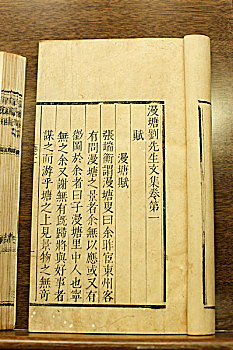 漫塘劉先生文集卷第一
賦
漫塘賦
張端衡謂漫塘叟曰余昨宦東州客
有問漫塘之景者余無以應或又有
徵圖於余者曰子漫塘里中人也寧
無之余又謝無有旣歸將與好事者
謀之而游乎塘之上見景物之無奇